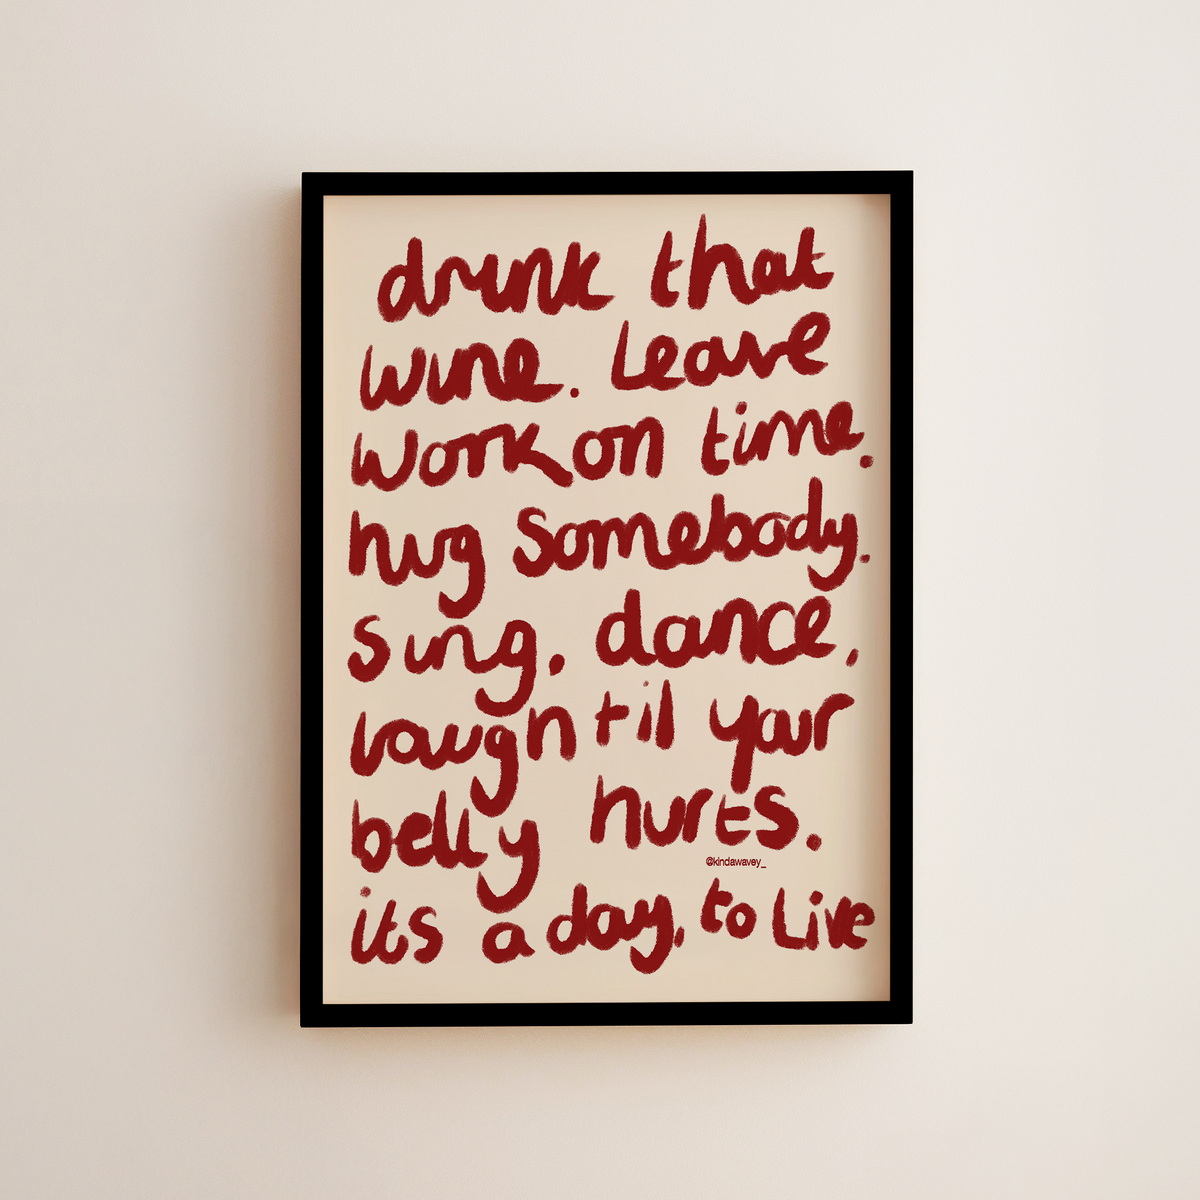 drink that
wine. Leave
work on time.
hug somebody.
Sing. dance.
laugh til your
belly hurts.
@kindawavey_
its a day, to Live